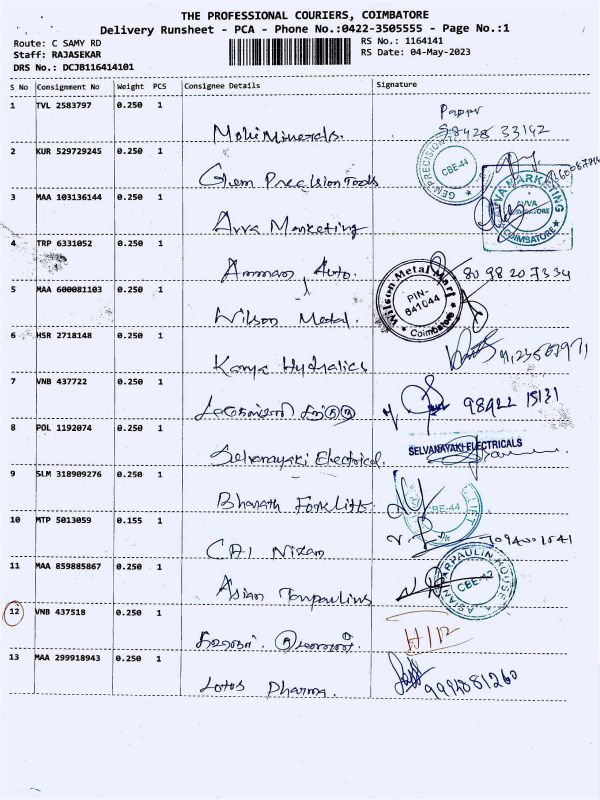 THE PROFESSIONAL COURIERS, COIMBATORE
Delivery Runsheet - PCA - Phone No.:0422-3505555 - Page No.:1
Route: C SAMY RD
Staff: RAJASEKAR
DRS No.: DCJB116414101
RS No.: 1164141
RS Date: 04-May-2023
S No Consignment No Weight PCS Consignee Details Signature
1 TVL 2583797 0.250 1
Mohi Minerals. 98428 33142
2 KUR 529729245 0.250 1
Gem Precision Tools
CBE-44
3 MAA 103136144 0.250 1
Avva Marketing
AVVA MARKETING
COIMBATORE
4 TRP 6331052 0.250 1
Amman Auto. 80 98 20 7334
5 MAA 600081103 0.250 1
Wilson Metal.
Wilson Metal Mart
PIN-
641044
Coimbatore
6 HSR 2718148 0.250 1
Kanya Hydralics
7 VNB 437722 0.250 1
98422 15131
8 POL 1192074 0.250 1
Selvanayaki Electrical.
SELVANAYAKI ELECTRICALS
9 SLM 318909276 0.250 1
Bharath Forklifts.
CBE-44
10 MTP 5013059 0.155 1
Nizam
11 MAA 859885867 0.250 1
Asian Tarpaulins
ASIAN TARPAULIN HOUSE
CBE-42
12 VNB 437518 0.250 1
13 MAA 299918943 0.250 1
Lotus Pharma. 9994081260